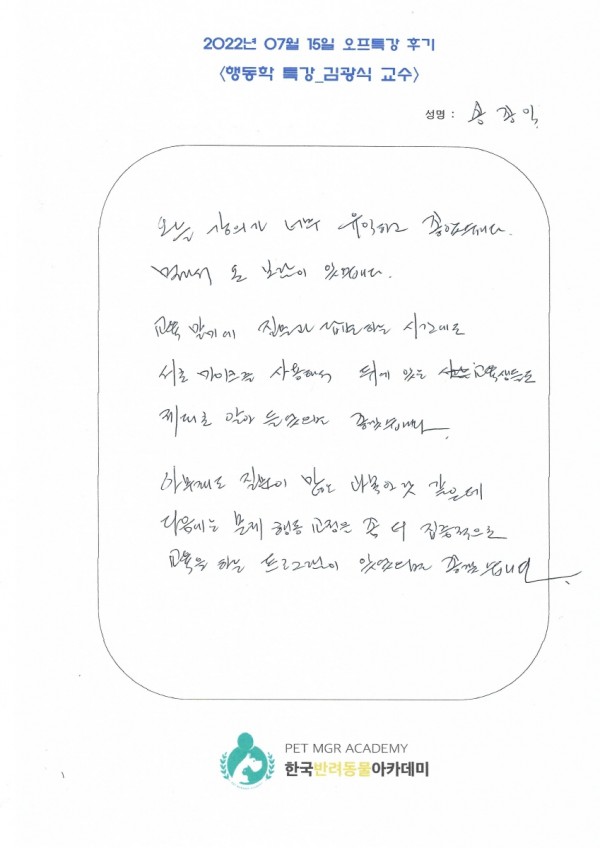 2022년 07월 15일 오프특강 후기
<행동학 특강_김광식 교수>
성명 :
오늘 강의가 너무 유익하고 좋았습니다.
온 보람이 있습니다.
교육 말미에 질문과 답변하는 시간에도
서로 마이크를 사용해서 뒤에 있는 교육생들도
제대로 알아 들었으면 좋겠습니다.
질문이 많고 것 같은데
다음에는 문제 행동 교정은 좀 더 집중적으로
교육을 하는 프로그램이 있었으면 좋겠습니다.
PET MGR ACADEMY
한국반려동물아카데미